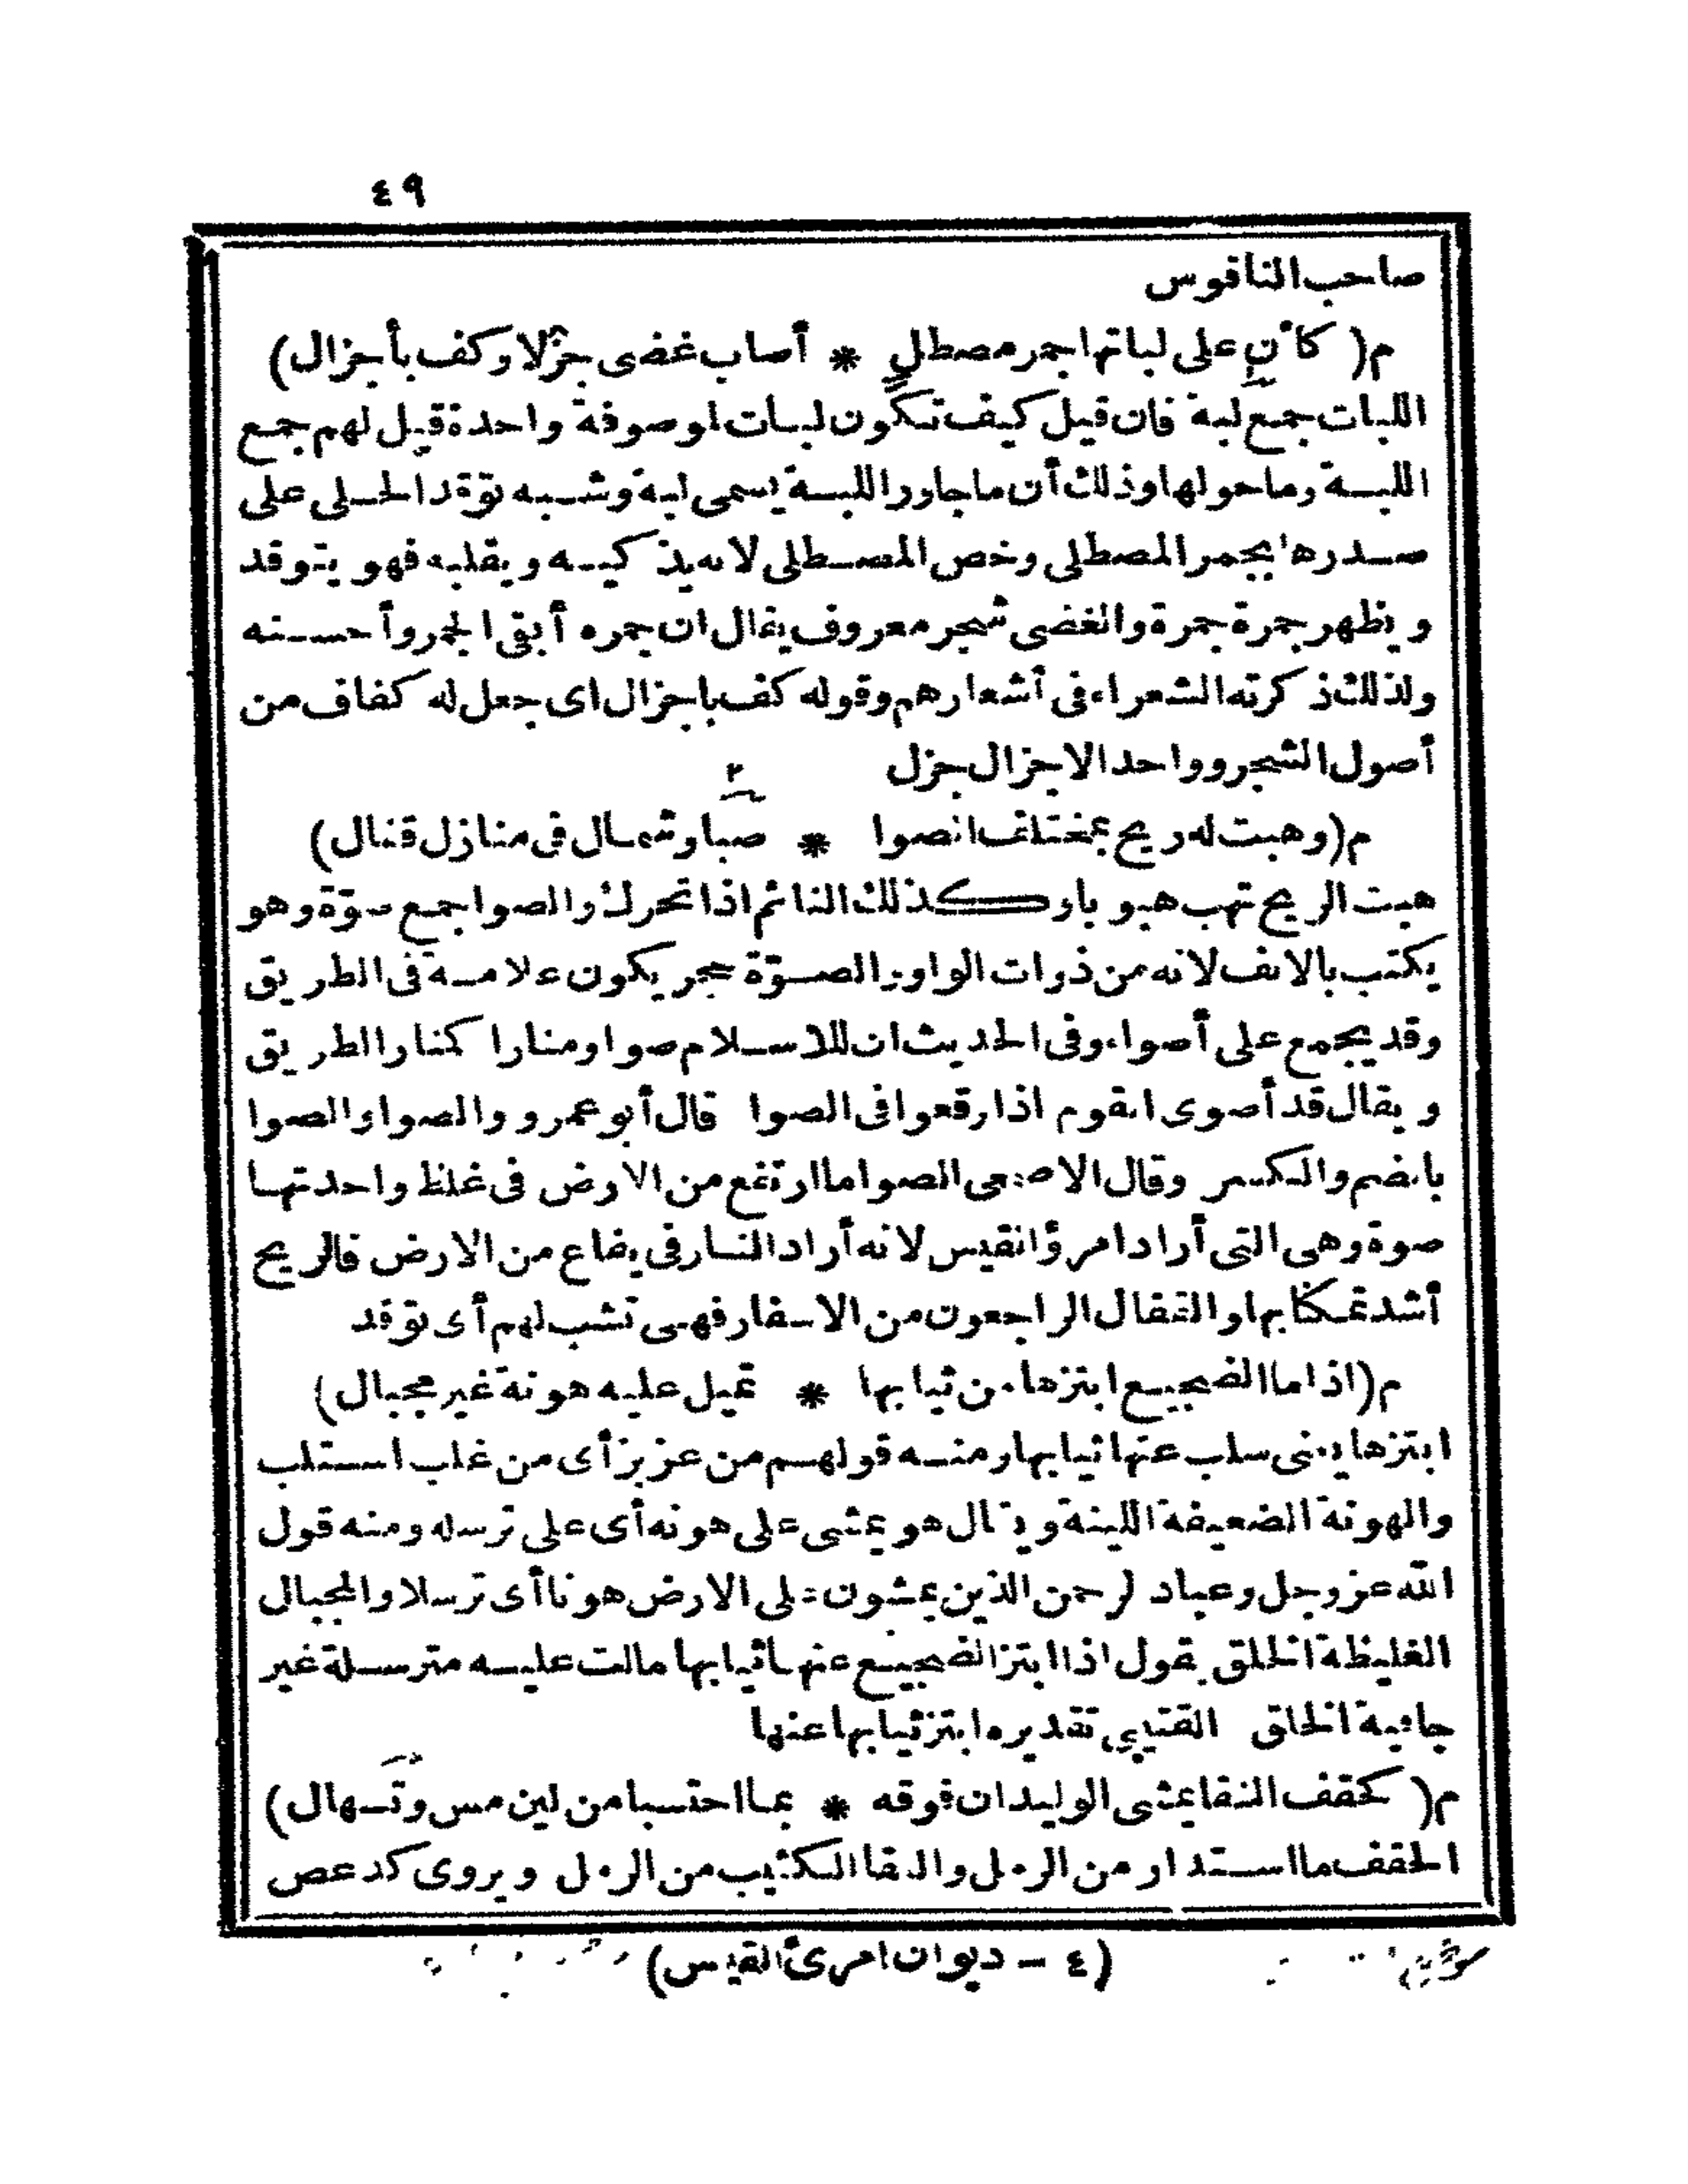 ٤٩
صاحب الناقوس
م( كأن على لباتها جمر مصطل * أصاب غضى جزلا وكف بأجزال)
اللبات جمع لبة فان قيل كيف تكون لبات لموصوفة واحدة قيل لهم جمع
اللبة وما حولها وذلك أن ما جاور اللبة يسمى لبة وشبه توقد الحلى على
صدرها بجمر المصطلى وخص المصطلى لانه يذكيه ويقلبه فهو يتوقد
ويظهر جمرة جمرة والغضى شجر معروف يقال ان جمره أبقى الجمر وأحسنه
ولذلك ذكرته الشعراء فى أشعارهم وقوله كف باجزال اى جعل له كفاف من
أصول الشجر وواحد الاجزال جزل
م(وهبت له ريح بمختلف الصوا * صبا وشمال فى منازل قفال)
هبت الريح تهب هبوبا وكذلك النائم اذا تحرك والصوا جمع صوّة وهو
يكتب بالالف لانه من ذوات الواو والصوّة حجر يكون علامة فى الطريق
وقد يجمع على أصواء وفى الحديث ان للاسلام صوا ومنارا كمنار الطريق
ويقال قد أصوى القوم اذا وقعوا فى الصوا قال أبو عمرو والصوا والصوا
بالضم والكسر وقال الاصمعى الصوا ما ارتفع من الارض فى غلظ واحدتها
صوة وهى التى أراد امرؤ القيس لانه أراد النار فى يفاع من الارض فالريح
أشد تمكنا بها والقفال الراجعون من الاسفار فهى تشب لهم أى توقد
م(اذا ما الضجيع ابتزها من ثيابها * تميل عليه هونة غير مجبال)
ابتزها يعنى سلب عنها ثيابها ومنه قولهم من عز بز أى من غلب استلب
والهونة الضعيفة اللينة ويقال هو يمشى على هونه أى على ترسله ومنه قول
الله عز وجل وعباد الرحمن الذين يمشون على الارض هونا أى ترسلا والمجبال
الغليظة الخلق يقول اذا ابتز الضجيع عنها ثيابها مالت عليه مترسلة غير
جافية الخلق القتيبي تقديره ابتز ثيابها عنها
م( كحقف النقا يمشى الوليدان فوقه * بما احتسبا من لين مس وتسهال)
الحقف ما استدار من الرمل والنقا الكثيب من الرمل ويروى كدعص
(٤ - ديوان امرئ القيس)